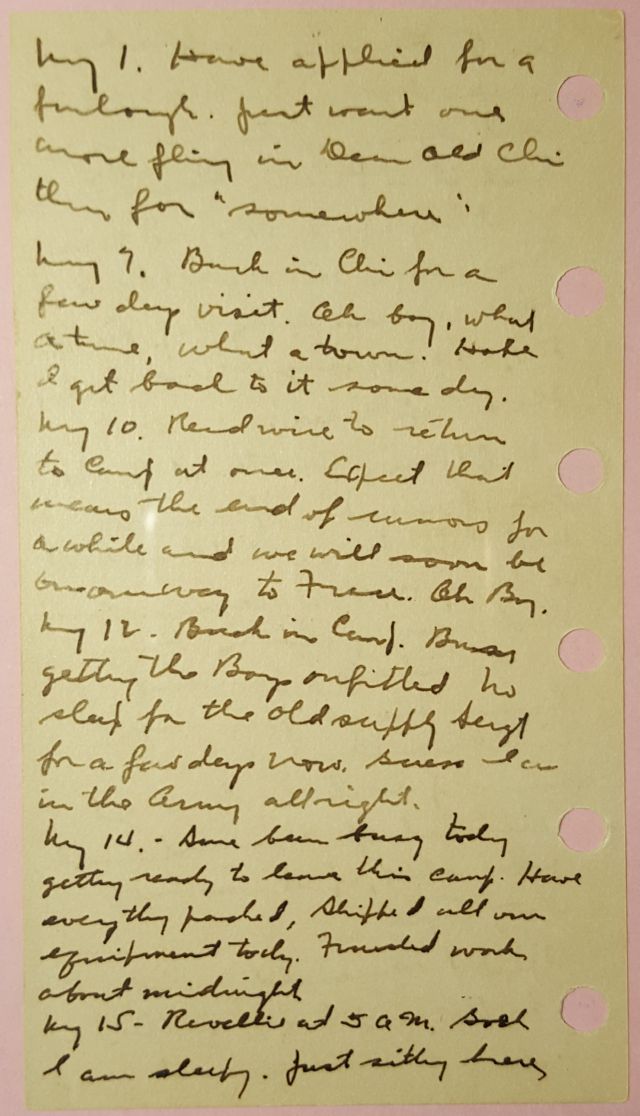 May 1. Have applied for a
furlough. Just want one
more fling in Dear Old Chi
then for "somewhere".
May 7. Back in Chi for a
few days visit. Oh boy, what
a time, what a town. Hope
I get back to it some day.
May 10. Read wire to return
to Camp at once. Expect that
means the end of rumors for
awhile and we will soon be
on our way to France. Oh Boy.
May 12. Back in Camp. Busy
getting the Boys outfitted No
sleep for the old supply Sergt
for a few days now. Guess I am
in the Army allright.
May 14. - Sure been busy today
getting ready to leave this camp. Have
everything packed, shipped all our
equipment today. Finished work
about midnight
May 15 - Reveille at 5 a.m. Gosh
I am sleepy. Just sitting here,